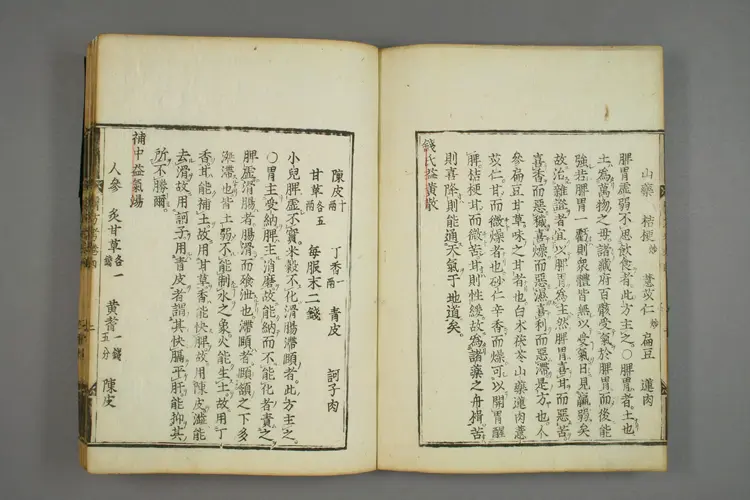 山藥 桔梗炒 薏苡仁炒 扁豆 蓮肉
脾胃虛弱不思飲食者此方主之。○脾胃者土也
土為萬物之母諸藏府百骸受氣於脾胃而後能
強若脾胃一虧則衆體皆無以受氣日見羸弱矣
故治雜證者宜以脾胃為主然脾胃喜甘而惡苦
喜香而惡穢喜燥而惡濕喜利而惡滯是方也人
參扁豆甘草味之甘者也白朮茯苓山藥蓮肉薏
苡仁甘而微燥者也砂仁辛香而燥可以開胃醒
脾桔梗甘而微苦甘則性緩故為諸藥之舟楫苦
則喜降則能通天氣于地道矣。
錢氏益黃散
陳皮十兩 丁香一兩 青皮 訶子肉
甘草各五兩 每服末二錢
小兒脾虛不實米穀不化滑腸滯頤者此方主之。
○胃主受納脾主消磨故能納而不能化者責之
脾虛滑腸者腸滑而飧泄也滯頤者頤頷之下多
涎滯也皆土弱不能制水之象火能生土故用丁
香甘能補土故用甘草香能快脾故用陳皮澁能
去滑故用訶子用青皮者謂其快膈平肝能抑其
所不勝爾。
補中益氣湯
人參 炙甘草各一錢 黃耆一錢五分 陳皮